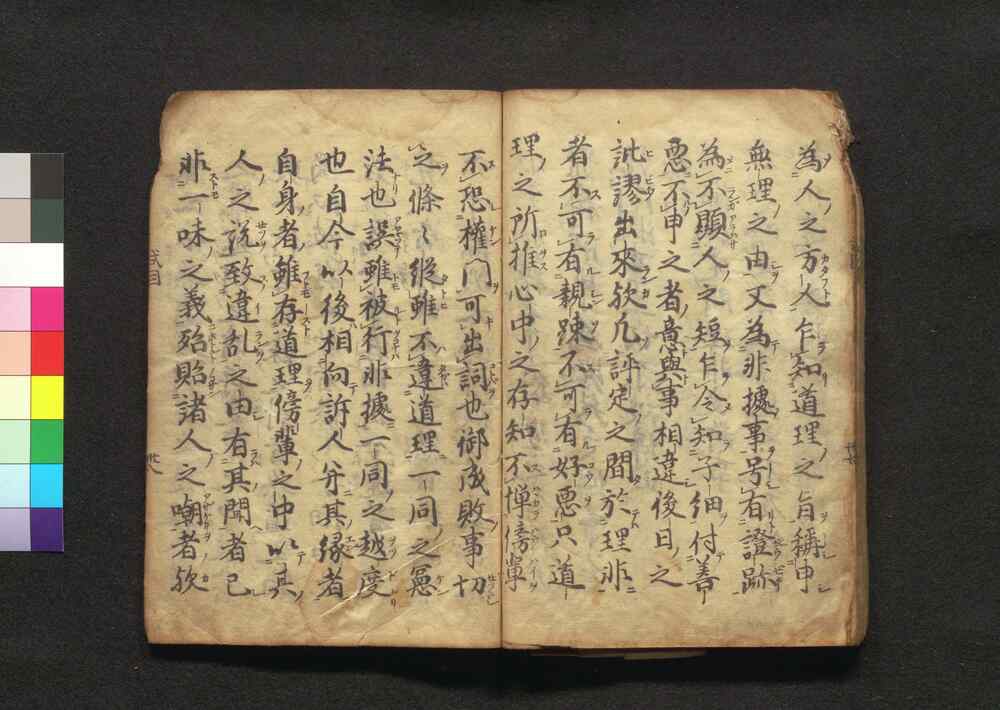 為人之方人乍知道理之旨称申
無理之由又為非據事号有證跡
為不顕人之短乍令知子細付善
悪不申之者意與事相違後日之
訛謬出来欤凡評定之間於理非
者不可有親疎不可有好悪只道
理之所推心中之存知不憚傍輩
不恐權門可出詞也御成敗事切
之條々縦雖不違道理一同之憲
法也誤雖被行非據一同之越度
也自今以後相向訴人并其縁者
自身者雖存道理傍輩之中以其
人之説致違乱之由有其聞者已
非一味之義殆貽諸人之嘲者欤